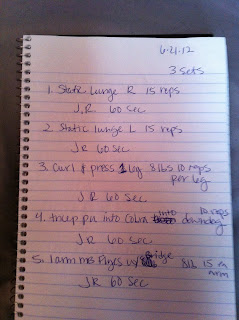 6-21-12
3 sets
1. Static lunge R 15 reps
J.R. 60 sec
2. Static lunge L 15 reps
JR 60 sec
3. Curl & press 1 leg 8 lbs 10 reps
per leg
JR 60 sec
4. tricep pu into Cobra into downdog 10 reps
JR 60 sec
5. 1 arm ms w/ Bridge 8lb 15 ea
arm
JR 60 sec